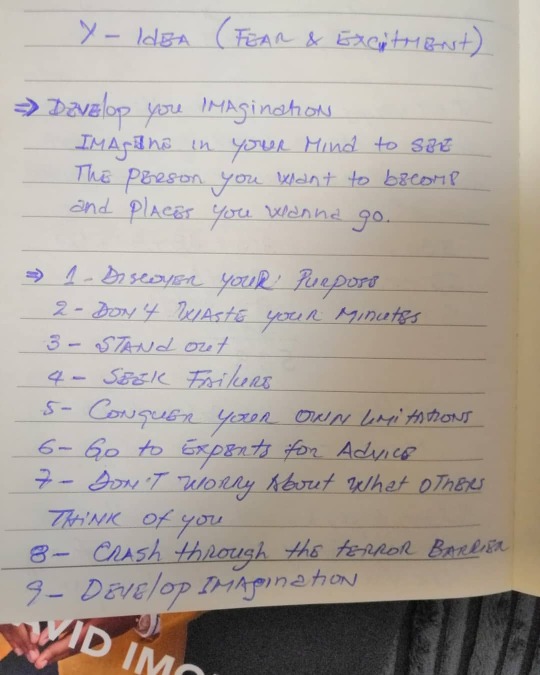 Y - IdEA (FEAR & ExcitMENt)
⇒ DEVElop you IMAgination
IMAgINE in youR Mind to SEE
The person you want to become
and PlACES you wanna go.
⇒ 1 - DiscovER youR Purpose
2 - DON't WAStE your Minutes
3 - STANd out
4 - SEEK FAiluRE
5 - CONquER youR OWN limitAtions
6 - Go to ExpeRts foR AdvicE
7 - DON'T WORRy About what oTHERs
THiNK of you
8 - CRAsh thRough the teRROR BARRiER
9 - DEVElop IMAginAtion
VID IMO